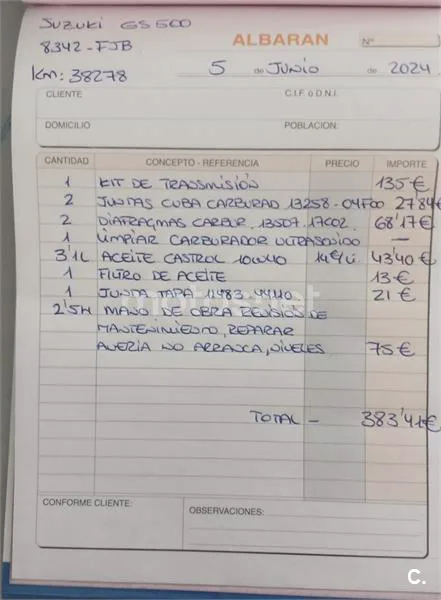 SUZUKI GS500
8342-FJB
ALBARAN Nº
Km: 38278
5 de JUNIO de 2024
CLIENTE C.I.F. ó D.N.I.
DOMICILIO POBLACION:
CANTIDAD CONCEPTO - REFERENCIA PRECIO IMPORTE
1 KIT DE TRASSMISIÓN 135 €
2 JUNTAS CUBA CARBURAD 13258-04F00 27'84€
2 DIAFRAGMAS CARBUR. 13507.17C02. 68'17€
1 LIMPIAR CARBURADOR ULTRASONIDO —
3'1L ACEITE CASTROL 10W40 14€/L 43'40€
1 FILTRO DE ACEITE 13€
1 JUNTA TAPA 21€
2'5H MANO DE OBRA REVISION DE
MANTENIMIENTO, REPARAR
AVERÍA NO ARRANCA, NIVELES 75€
TOTAL - 383'41€
CONFORME CLIENTE: OBSERVACIONES:
C.